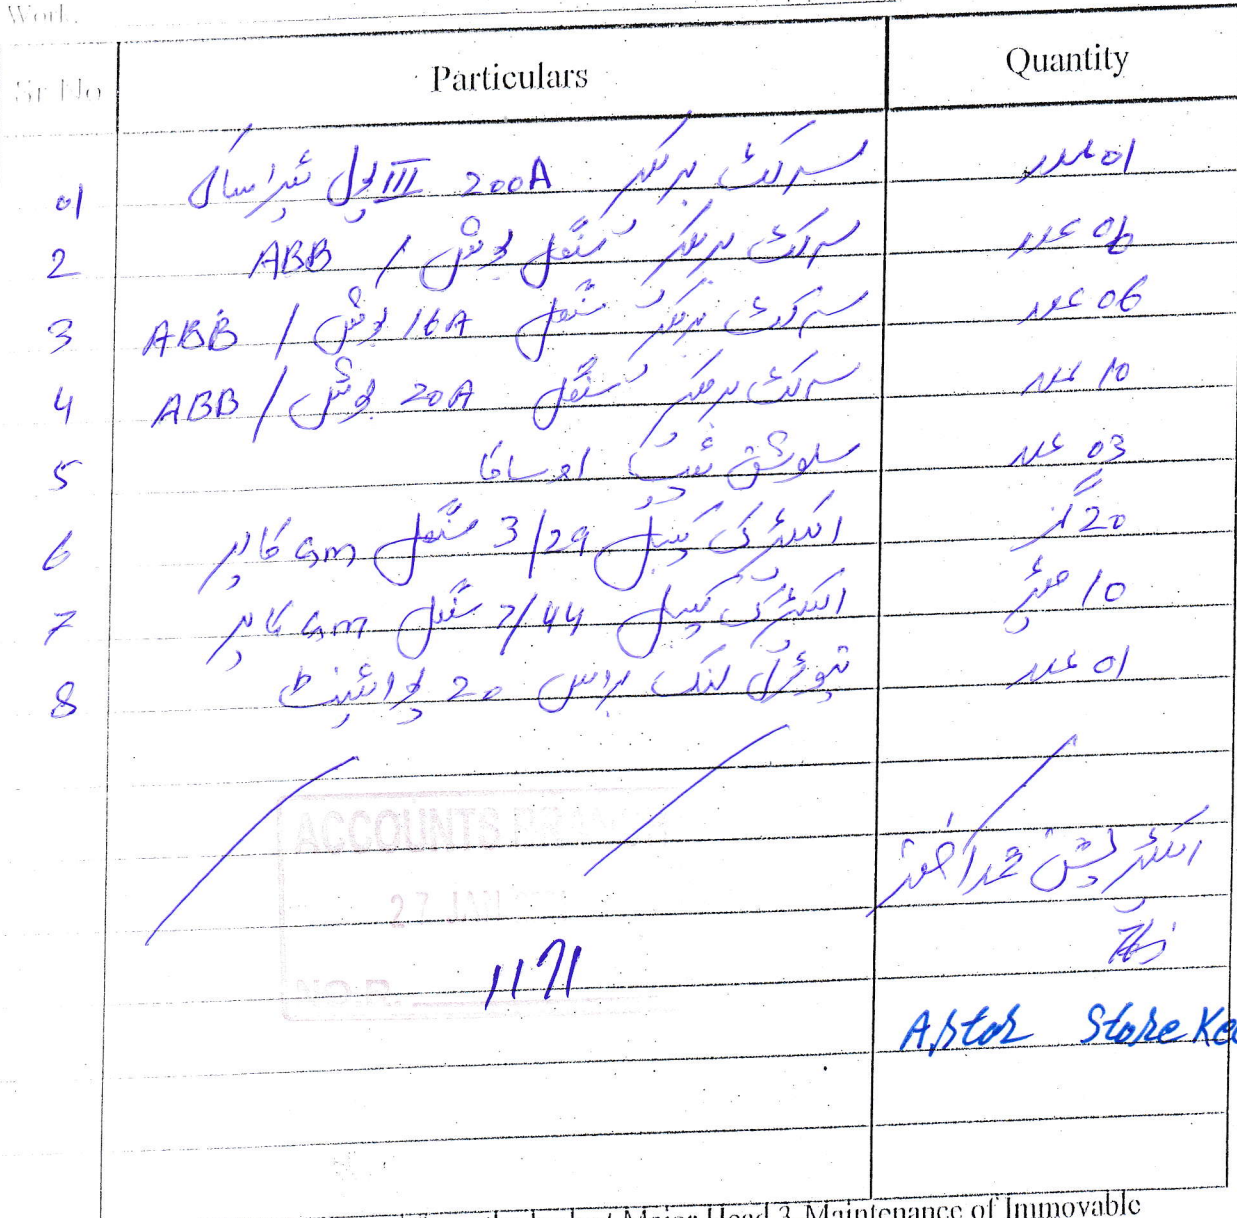 Work.
Sr No Particulars Quantity
01 سرکٹ بریکر 200A III پول ٹیراساکی 01 عدد
2 سرکٹ بریکر سنگل پوش / ABB 06 عدد
3 سرکٹ بریکر سنگل 16A پوش / ABB 06 عدد
4 سرکٹ بریکر سنگل 20A پوش / ABB 10 عدد
5 سلوشن ٹیپ اوساکا 03 عدد
6 الیکٹرک کیبل 3/29 سنگل GM کاپر 20 گز
7 الیکٹرک کیبل 7/44 سنگل GM کاپر 10 میٹر
8 نیوٹرل لنک براس 20 پوائینٹ 01 عدد
ACCOUNTS BRANCH
الیکٹریشن محمد اختر
27 JAN
1171
Store Kee
Major Head 3 Maintenance of Immovable